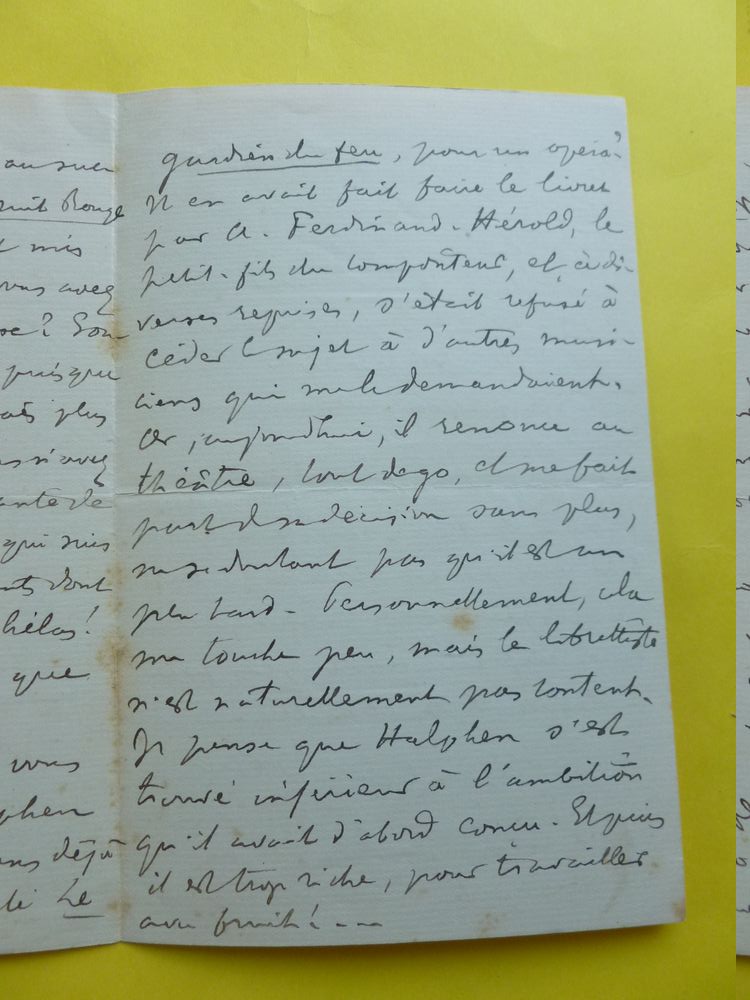 au sui
nuit Rouge
mis
vous avez
? Son
puisque
plus
n'avez
de
qui suis
dont
hélas!
que
vous
phen
déjà
Le
gardien du feu, pour un opéra.
Il en avait fait faire le livret
par A. Ferdinand-Hérold, le
petit-fils du compositeur, et à di-
verses reprises, s'était refusé à
céder le sujet à d'autres musi-
ciens qui me le demandaient.
Or, aujourd'hui, il renonce au
théâtre, tout de go, et me fait
part de sa décision sans plus,
ne se doutant pas qu'il est un
peu tard. Personnellement, cela
me touche peu, mais le librettiste
n'est naturellement pas content.
Je pense que Halphen s'est
trouvé inférieur à l'ambition
qu'il avait d'abord conçue. Et puis
il est trop riche, pour travailler
avec fruit! ---